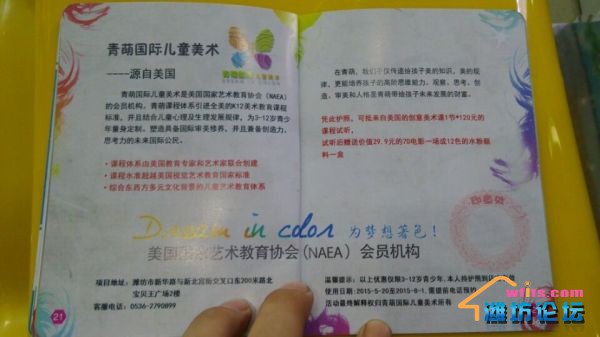 青萌国际儿童美术
----源自美国
青萌国际儿童美术是美国国家艺术教育协会（NAEA）
的会员机构，青萌课程体系引进全美的K12美术教育课程
标准，并且结合儿童心理及生理发展规律，为3-12岁青少
年量身定制。塑造具备国际审美修养，并且兼备创造力、
思考力的未来国际公民。
·课程体系由美国教育专家和艺术家联合创建
·课程水准超越美国视觉艺术教育国家标准
·综合东西方多元文化背景的儿童艺术教育体系
在青萌，我们不仅传递给孩子美的知识、美的规
律，更能培养孩子的高阶思维能力，观察、思考、创
造、审美和人格是青萌带给孩子未来发展的财富。
凭此护照，可抵来自美国的创意美术课1节*120元的
课程试听。
试听后赠送价值29.9元的70电影一场或12色的水粉颜
料一盒
Dream in color 为梦想着色！
美国国家艺术教育协会（NAEA）会员机构
项目地址：潍坊市新华路与新北宫街交叉口东200米路北
宝贝王广场2楼
客服电话：0536-2790899
温馨提示：以上优惠仅限3-12岁青少年，本人持护照到
使用日期：2015-5-20至2015-8-1，需提前电话预约
活动最终解释权归青萌国际儿童美术所有
21
wfits.com
潍坊论坛